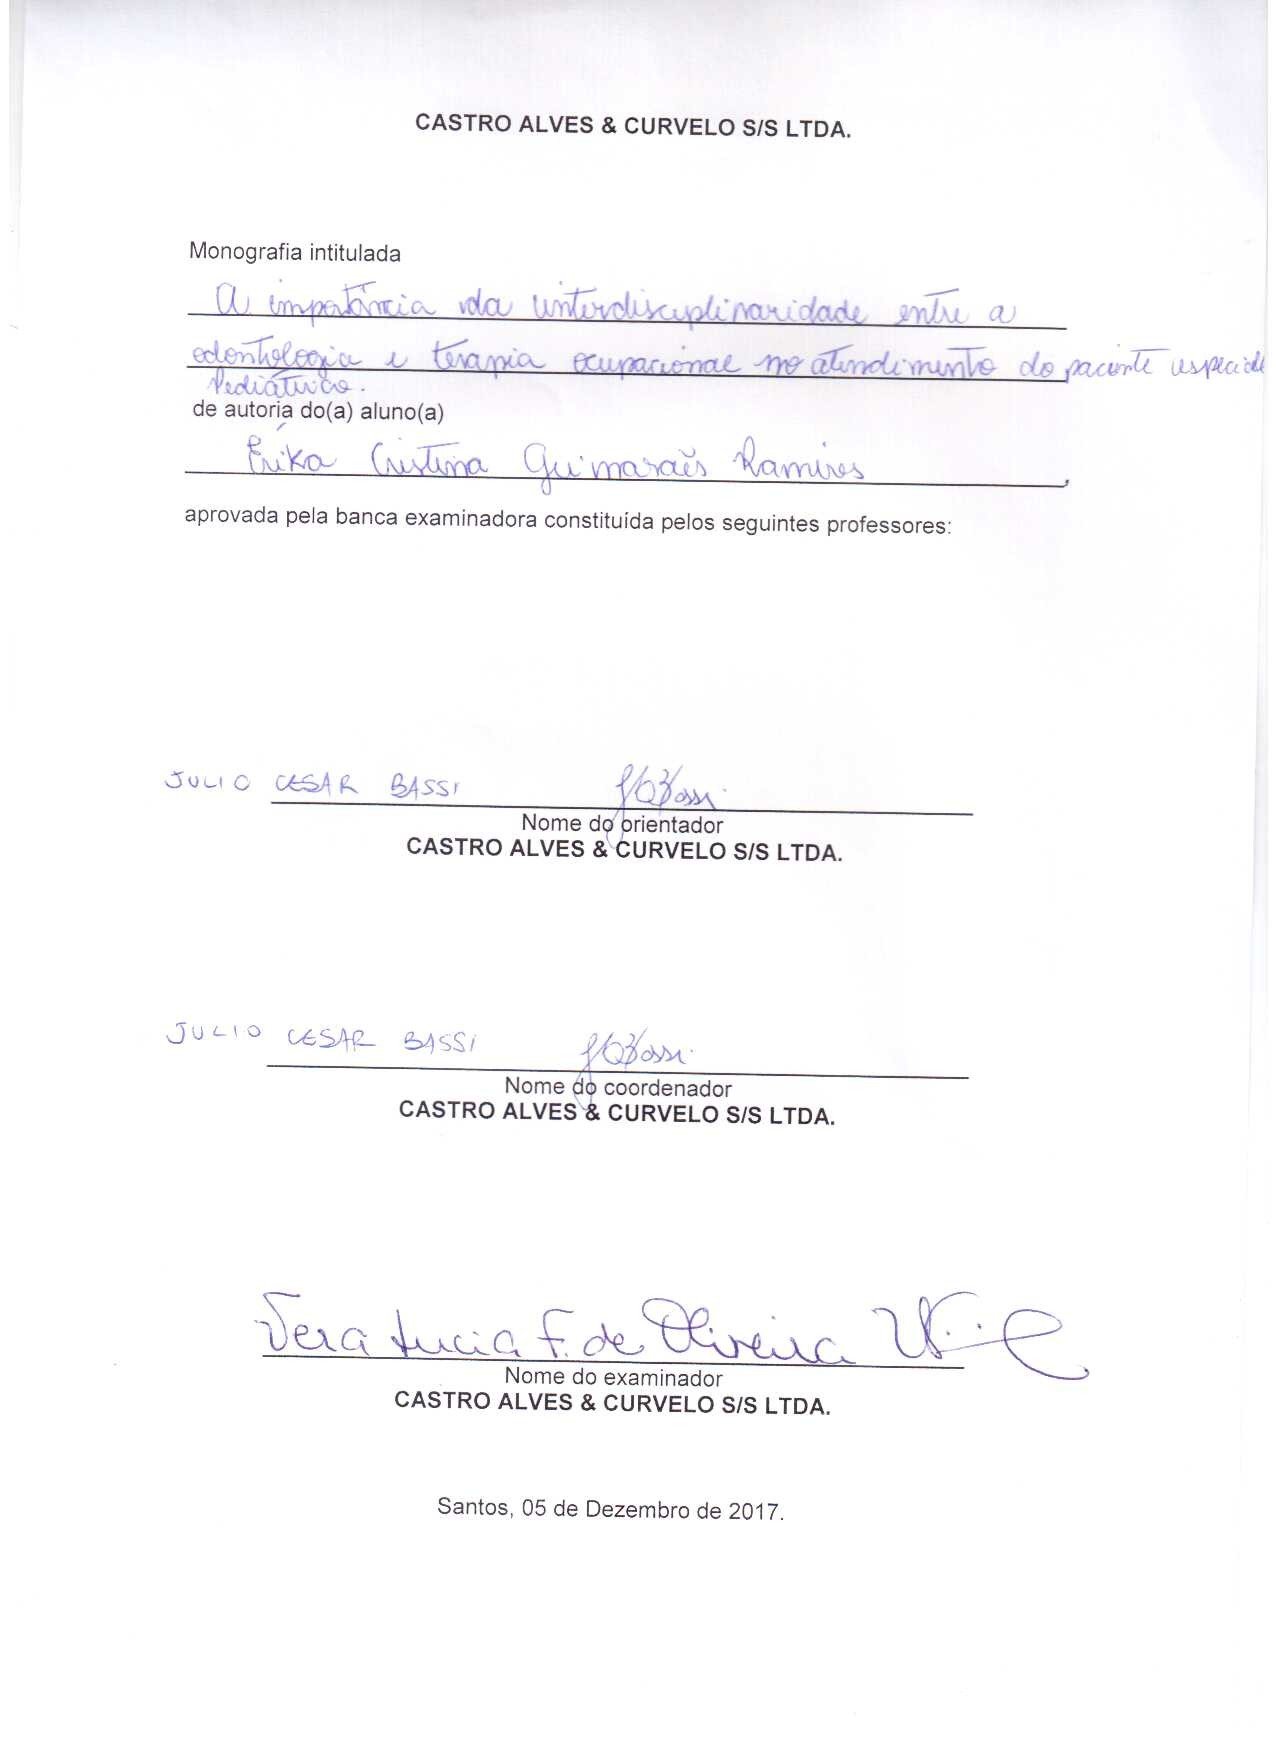 CASTRO ALVES & CURVELO S/S LTDA.
Monografia intitulada
A importância da interdisciplinaridade entre a
odontologia e terapia ocupacional no atendimento do paciente
Pediátrico.
de autoria do(a) aluno(a)
Érika Cristina Guimarães Ramires,
aprovada pela banca examinadora constituída pelos seguintes professores:
JULIO CESAR BASSI
Nome do orientador
CASTRO ALVES & CURVELO S/S LTDA.
JULIO CESAR BASSI
Nome do coordenador
CASTRO ALVES & CURVELO S/S LTDA.
Vera Lucia F. de Oliveira
Nome do examinador
CASTRO ALVES & CURVELO S/S LTDA.
Santos, 05 de Dezembro de 2017.